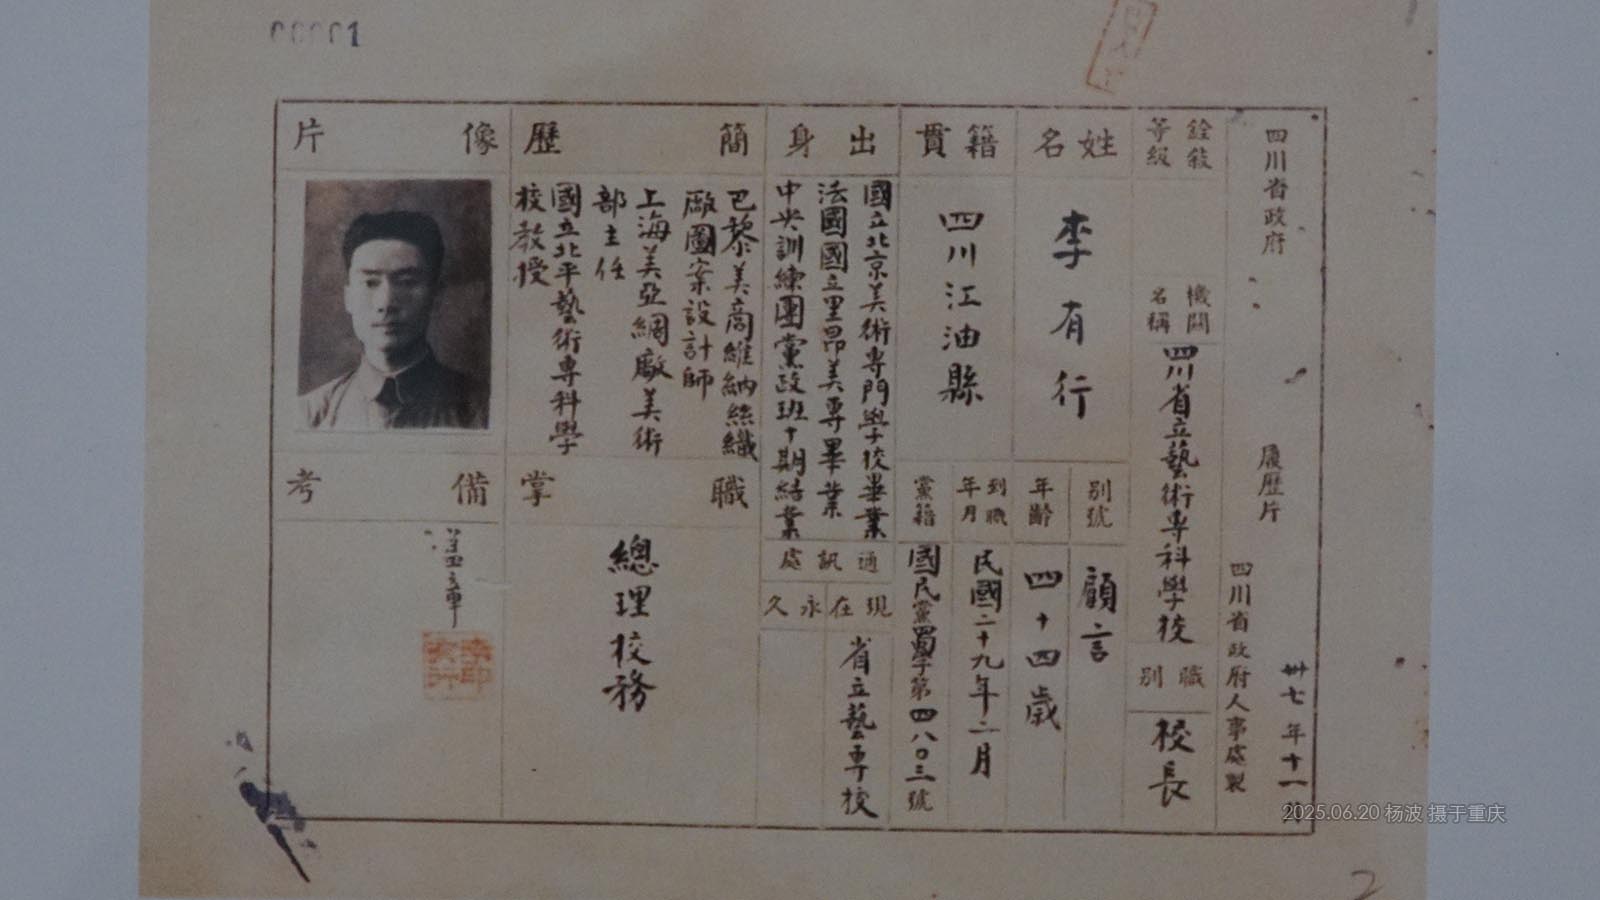 四川省政府
履歷片
四川省政府人事處製
卅七年十一
銓敍等級
機關名稱
四川省立藝術專科學校
職別
校長
姓名
李有行
別號
顧言
年齡
四十四歲
籍貫
四川江油縣
到職年月
民國二十九年二月
黨籍
國民黨蜀學第四八〇三號
出身
國立北京美術專門學校畢業
法國國立里昂美專畢業
中央訓練團黨政班十期結業
通訊處
現在
省立藝專校
永久
簡歷
巴黎美商維納絲織
廠圖案設計師
上海美亞綢廠美術
部主任
國立北平藝術專科學
校教授
職掌
總理校務
像片
備考
2025.06.20 杨波 摄于重庆